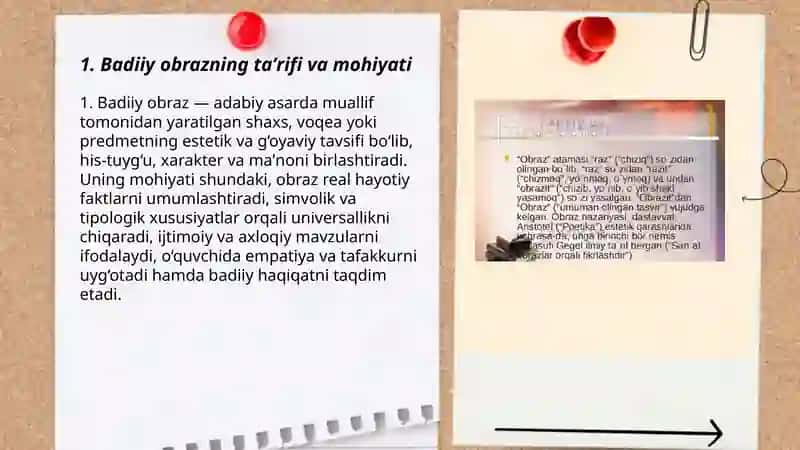 1. Badiiy obrazning ta’rifi va mohiyati
1. Badiiy obraz — adabiy asarda muallif
tomonidan yaratilgan shaxs, voqea yoki
predmetning estetik va g‘oyaviy tavsifi bo‘lib,
his-tuyg‘u, xarakter va ma’noni birlashtiradi.
Uning mohiyati shundaki, obraz real hayotiy
faktlarni umumlashtiradi, simvolik va
tipologik xususiyatlar orqali universallikni
chiqaradi, ijtimoiy va axloqiy mavzularni
ifodalaydi, o‘quvchida empatiya va tafakkurni
uyg‘otadi hamda badiiy haqiqatni taqdim
etadi.
“Obraz” atamasi “raz” (“chiziq”) so`zidan
olingan bo`lib, “raz” so`zidan “razit”
(“chizmoq, yo`nmoq, o`ymoq) va undan
“obrazit” (“chizib, yo`nib, o`yib shakl
yasamoq”) so`zi yasalgan. “Obrazit”dan
“Obraz” (“umuman olingan tasvir”) vujudga
kelgan. Obraz nazariyasi dastavval
Aristotel (“Poetika”) estetik qarashlarida
unga birinchi bor nemis
Gegel ilmiy ta`rif bergan (“San`at
orqali fikrlashdir”)